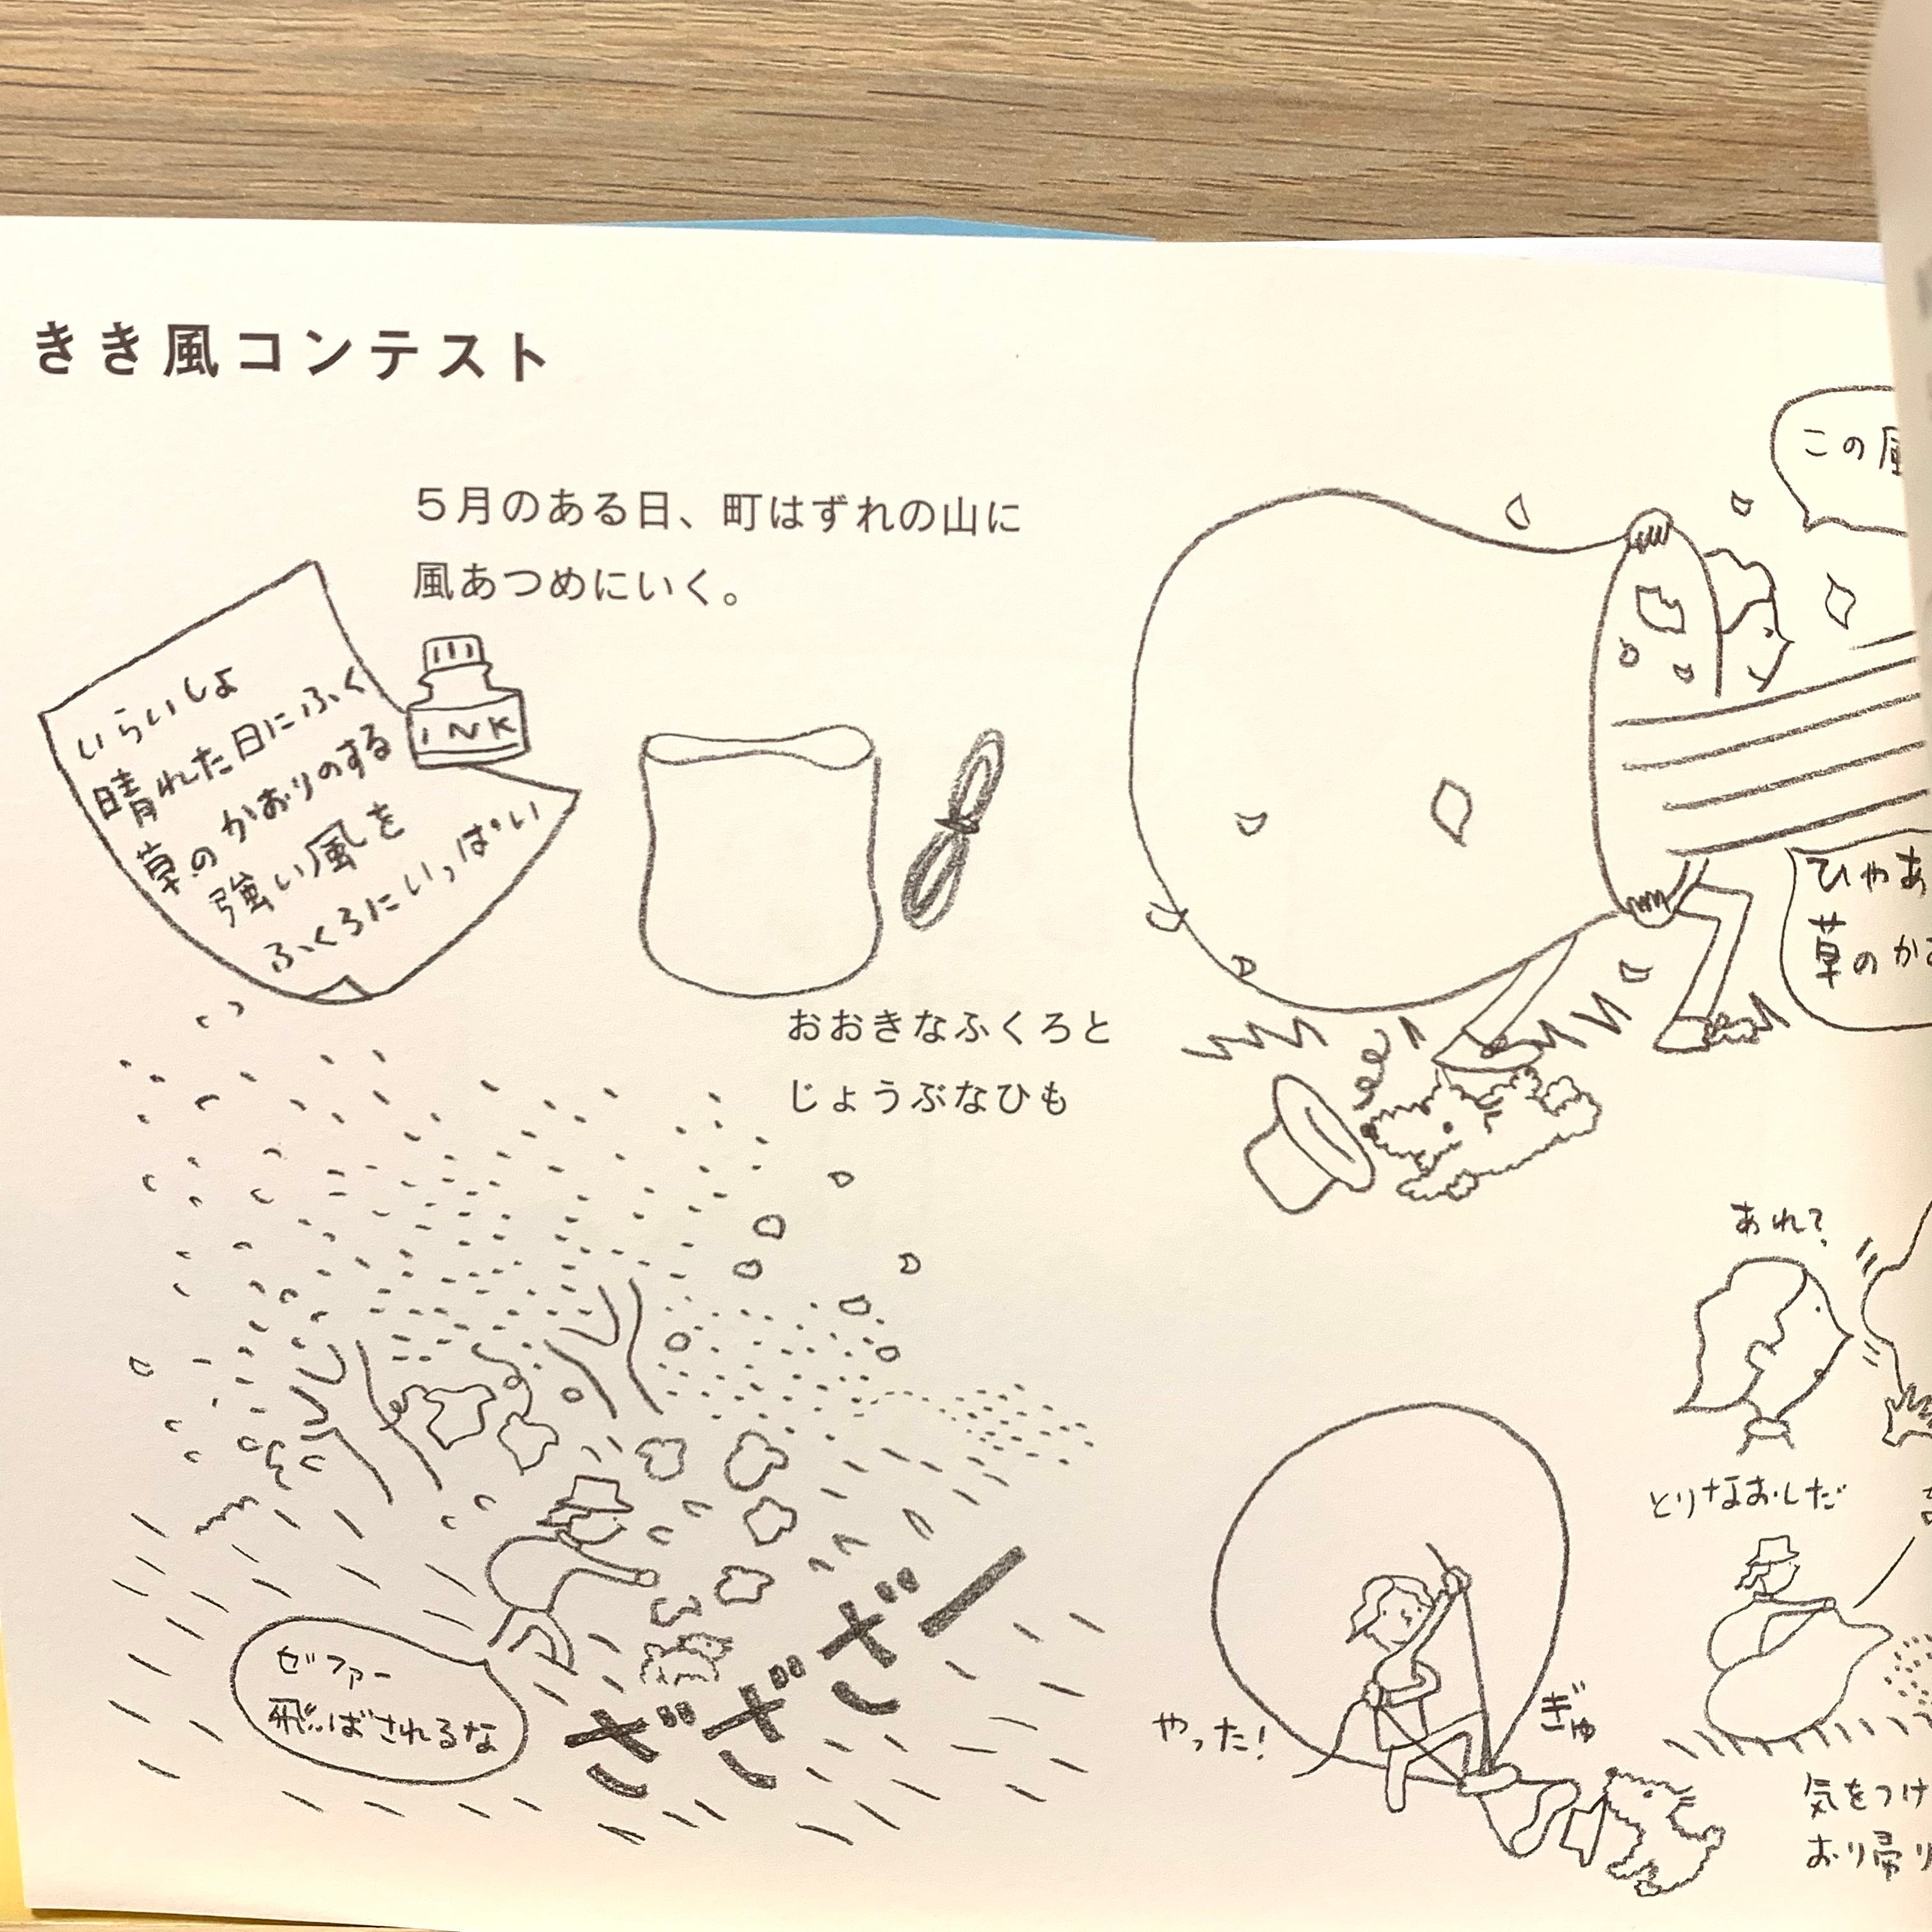 きき風コンテスト
５月のある日、町はずれの山に
風あつめにいく。
いらいしょ
晴れた日にふく
草のかおりのする
強い風を
ふくろにいっぱい
INK
おおきなふくろと
じょうぶなひも
ゼファー
飛ばされるな
ざざざー
この
ひゃあ
草のか
あれ?
とりなおしだ
やった!
ぎゅ
気をつけ
おり帰り